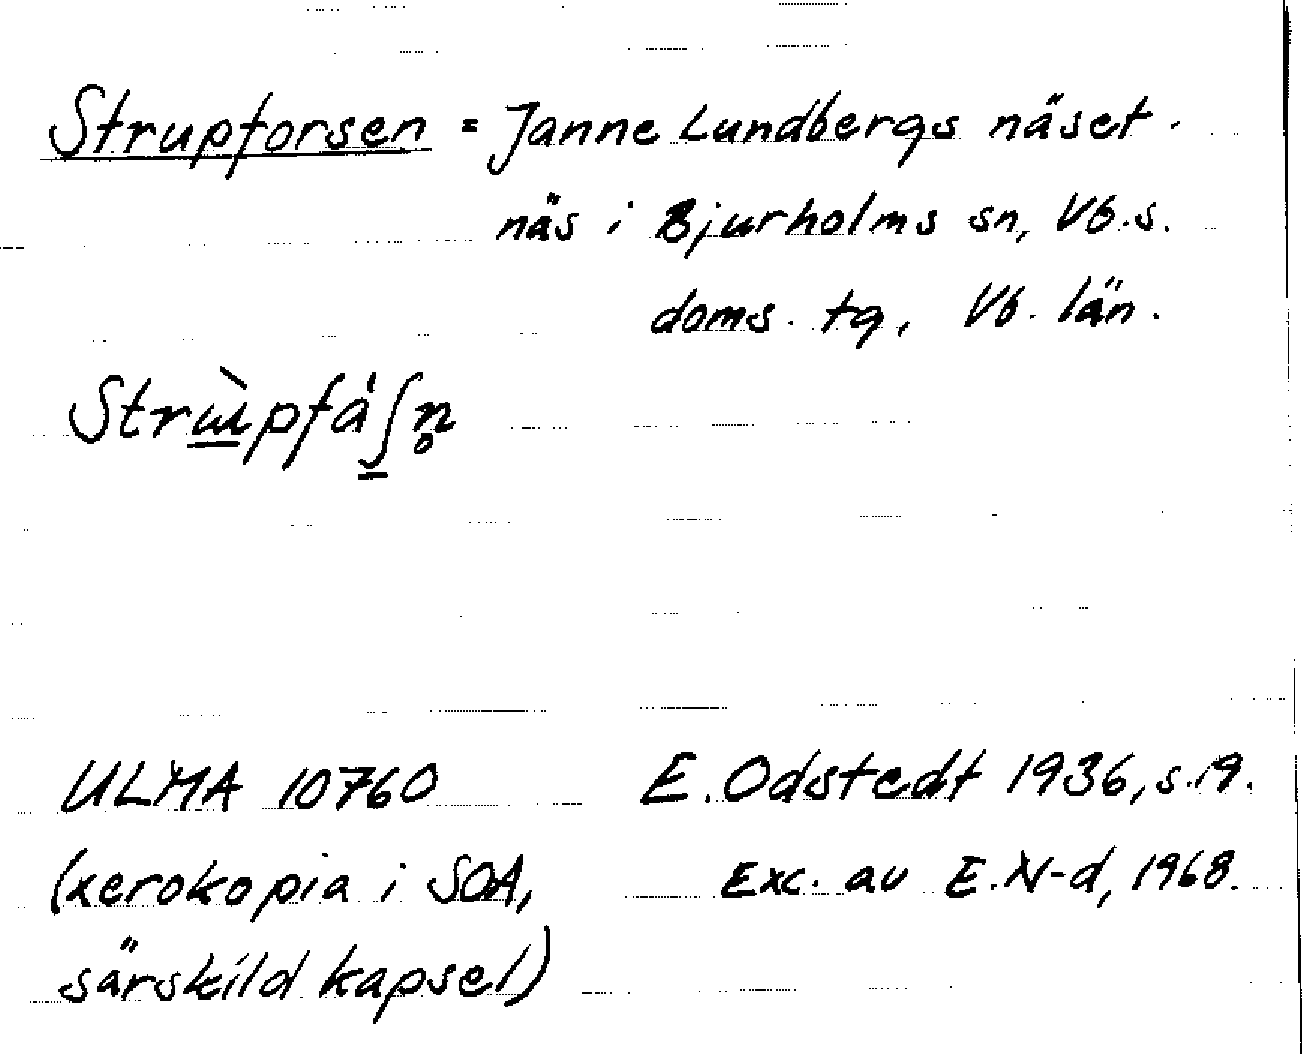 Strupforsen = Janne Lundbergs näset.
näs i Bjurholms sn, Vb.s.
doms. tg, Vb. län.
ULMA 10760 E. Odstedt 1936, s.19.
(xerokopia i SOA, Exc. av E.N-d, 1968.
särskild kapsel)